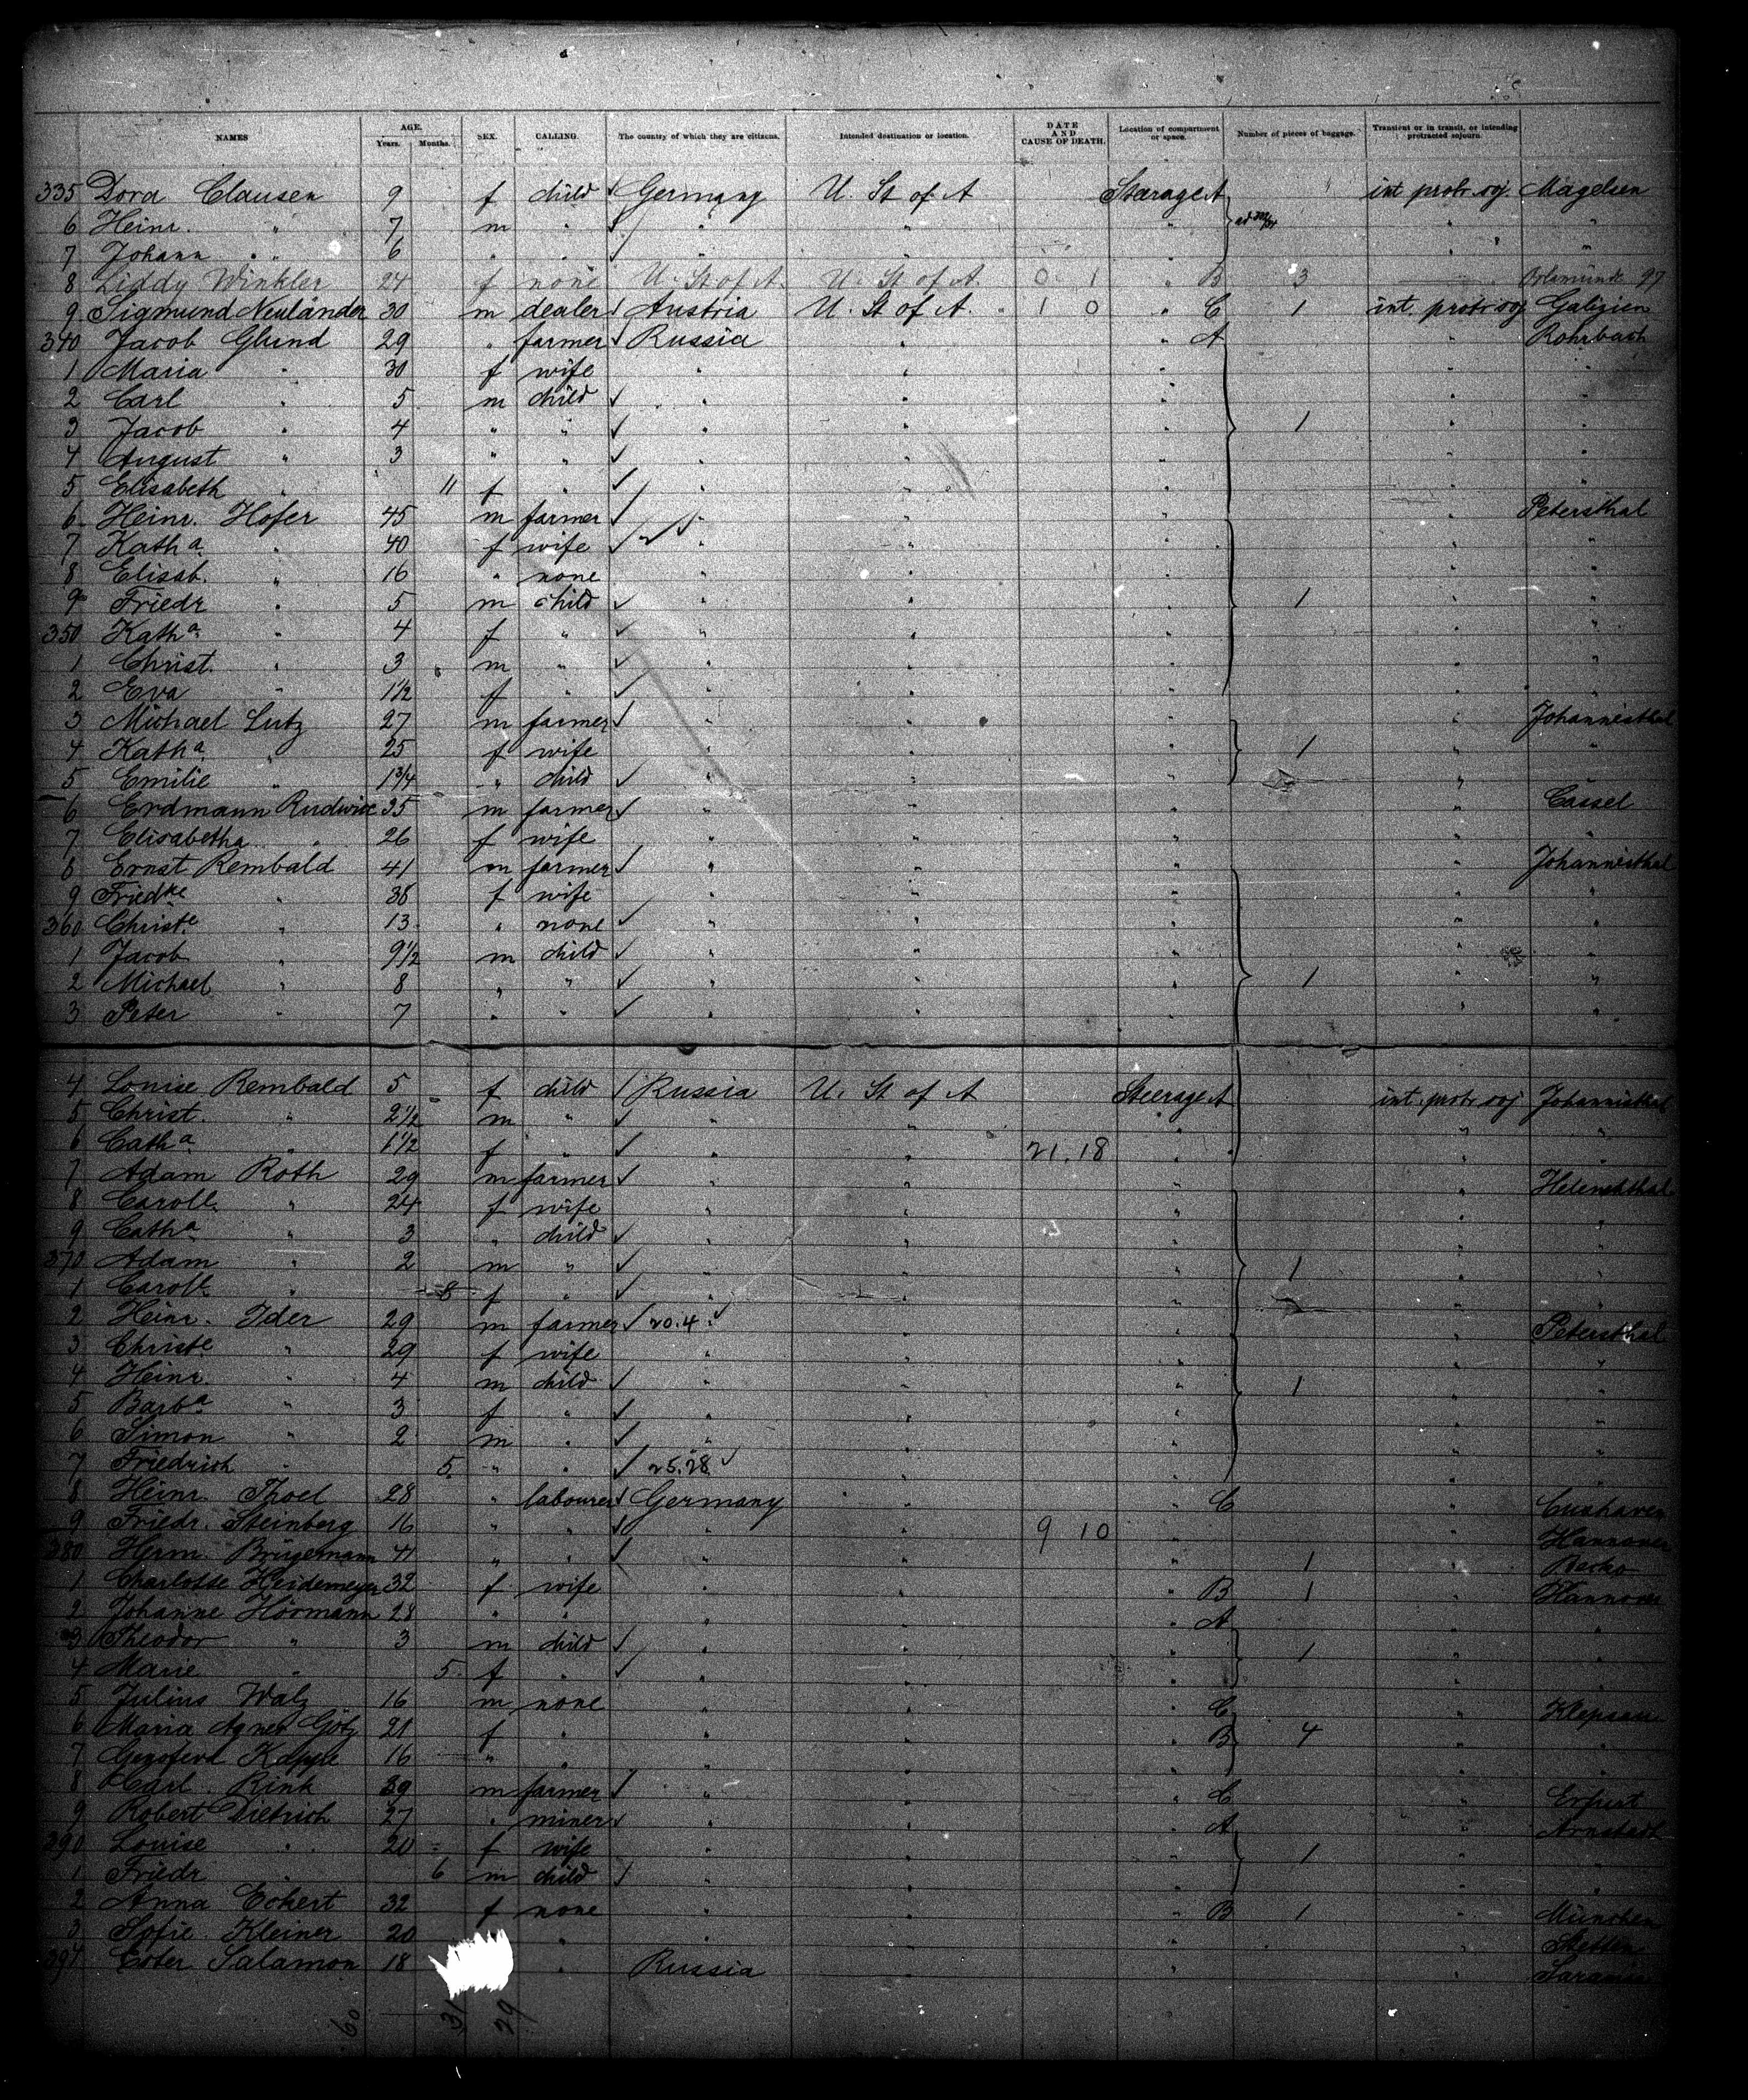 NAMES AGE. Years. Months. SEX. CALLING. The country of which they are citizens. Intended destination or location. DATE AND CAUSE OF DEATH. Location of compartment or space. Number of pieces of baggage. Transient or in transit, or intending protracted sojourn.
335 Dora Clausen 9 f child Germany U. St of A Steerage A int. protr. soj. Magelsen
6 Heinr. " 7 m " " " " " "
7 Johann " 6 " " " " " " "
8 Liddy Winkler 24 f none U. St of A. U. St of A. 0 1 " B 3
9 Sigmund Neuländer 30 m dealer Austria U. St of A. 1 0 " C 1 int. protr soj Galizien
340 Jacob Glund 29 " farmer Russia " " A Rohrbach
1 Maria " 30 f wife " " " " "
2 Carl " 5 m child " " " " "
3 Jacob " 4 " " " " " 1 " "
4 August " 3 " " " " " " "
5 Elisabeth " 11 f " " " " " "
6 Heinr. Hofer 45 m farmer " " " " Petersthal
7 Katha " 40 f wife " " " " "
8 Elisab. " 16 " none " " " " "
9 Friedr " 5 m child " " " 1 " "
350 Katha " 4 f " " " " " "
1 Christ. " 3 m " " " " " "
2 Eva " 1 1/2 f " " " " " "
3 Michael Lutz 27 m farmer " " " " Johannisthal
4 Katha " 25 f wife " " " 1 " "
5 Emilie " 1 3/4 " child " " " " "
6 Erdmann Rudwix 35 m farmer " " " " Cassel
7 Elisabetha " 26 f wife " " " " "
8 Ernst Rembald 41 m farmer " " " " Johannisthal
9 Friedke " 38 f wife " " " " "
360 Christe " 13 " none " " " " "
1 Jacob " 9 1/2 m child " " " " "
2 Michael " 8 " " " " " 1 " "
3 Peter " 7 " " " " " " "
4 Louise Rembald 5 f child Russia U. St of A Steerage A int. protr soj Johannisthal
5 Christ. " 2 1/2 m " " " " " "
6 Catha " 1 1/2 f " " " 21.18 " " "
7 Adam Roth 29 m farmer " " " " Helenenthal
8 Caroll. " 24 f wife " " " " "
9 Catha " 3 " child " " " " "
370 Adam " 2 m " " " " 1 " "
1 Caroll " 8 f " " " " " "
2 Heinr. Ider 29 m farmer 20.4 " " " Petersthal
3 Christe " 29 f wife " " " " "
4 Heinr. " 4 m child " " " 1 " "
5 Barba " 3 f " " " " " "
6 Simon " 2 m " " " " " "
7 Friedrich " 5 " " 25.28 " " " "
8 Heinr. Thoel 28 " labourer Germany " " C " Cuxhaven
9 Friedr. Steinberg 16 " " " " 9 10 " " Hannover
380 Herm. Brügemann 41 " " " " " 1 "
1 Charlotte Heidemeyer 32 f wife " " " B 1 " Hannover
2 Johanne Hörmann 28 " " " " " A " "
3 Theodor " 3 m child " " " 1 " "
4 Marie " 5 f " " " " " "
5 Julius Walz 16 m none " " " C " Klepsau
6 Maria Agnes Götz 21 f " " " " B 4 " "
7 Genofeva Kappe 16 " " " " " " "
8 Carl Rink 39 m farmer " " " C " Erfurt
9 Robert Dietrich 27 " miner " " " A " Arnstadt
390 Louise " 20 f wife " " " 1 " "
1 Friedr " 6 m child " " " " "
2 Anna Eckert 32 f none " " " B 1 " München
3 Sofie Kleiner 20 " " " " " Stettin
394 Ester Salamon 18 " Russia " " "
60 31 29